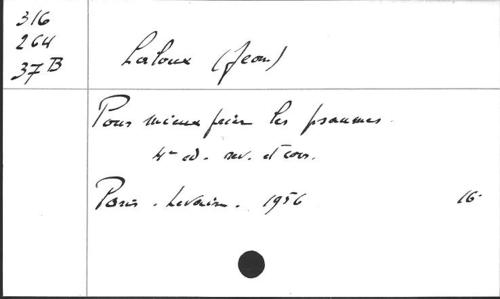 316
264
37 B
Laloux (Jean)
Pour mieux prier les psaumes.
4e éd. rev. et corr.
Paris. 1956 16